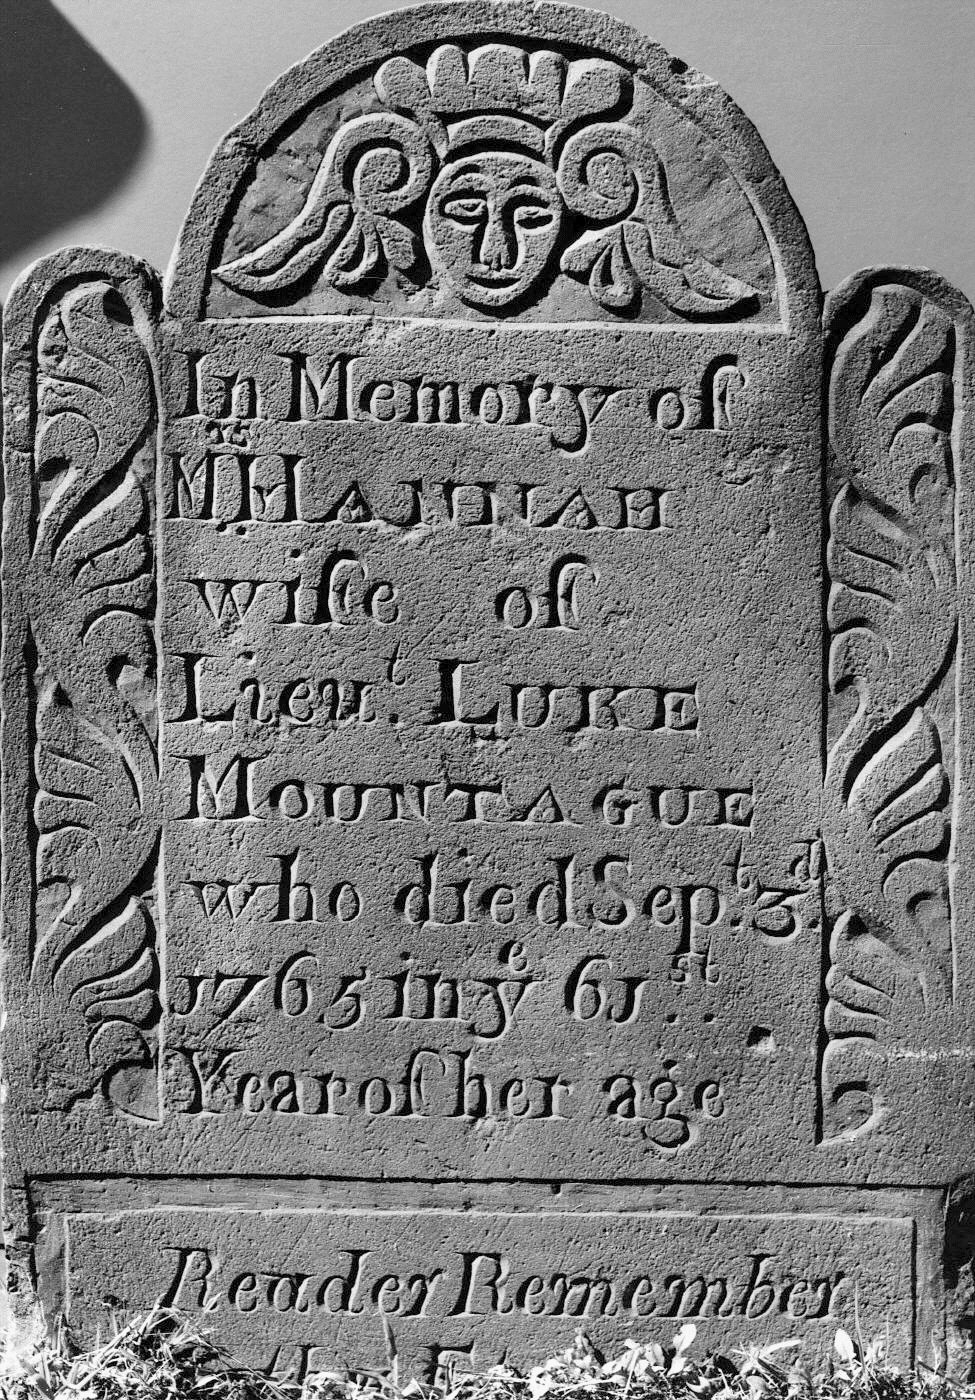 In Memory of
M.rs HANNAH
wife of
Lieu.t LUKE
MOUNTAGUE
who died Sep.t 3.d
1765 in ye 61.st
Year of her age
Reader Remember